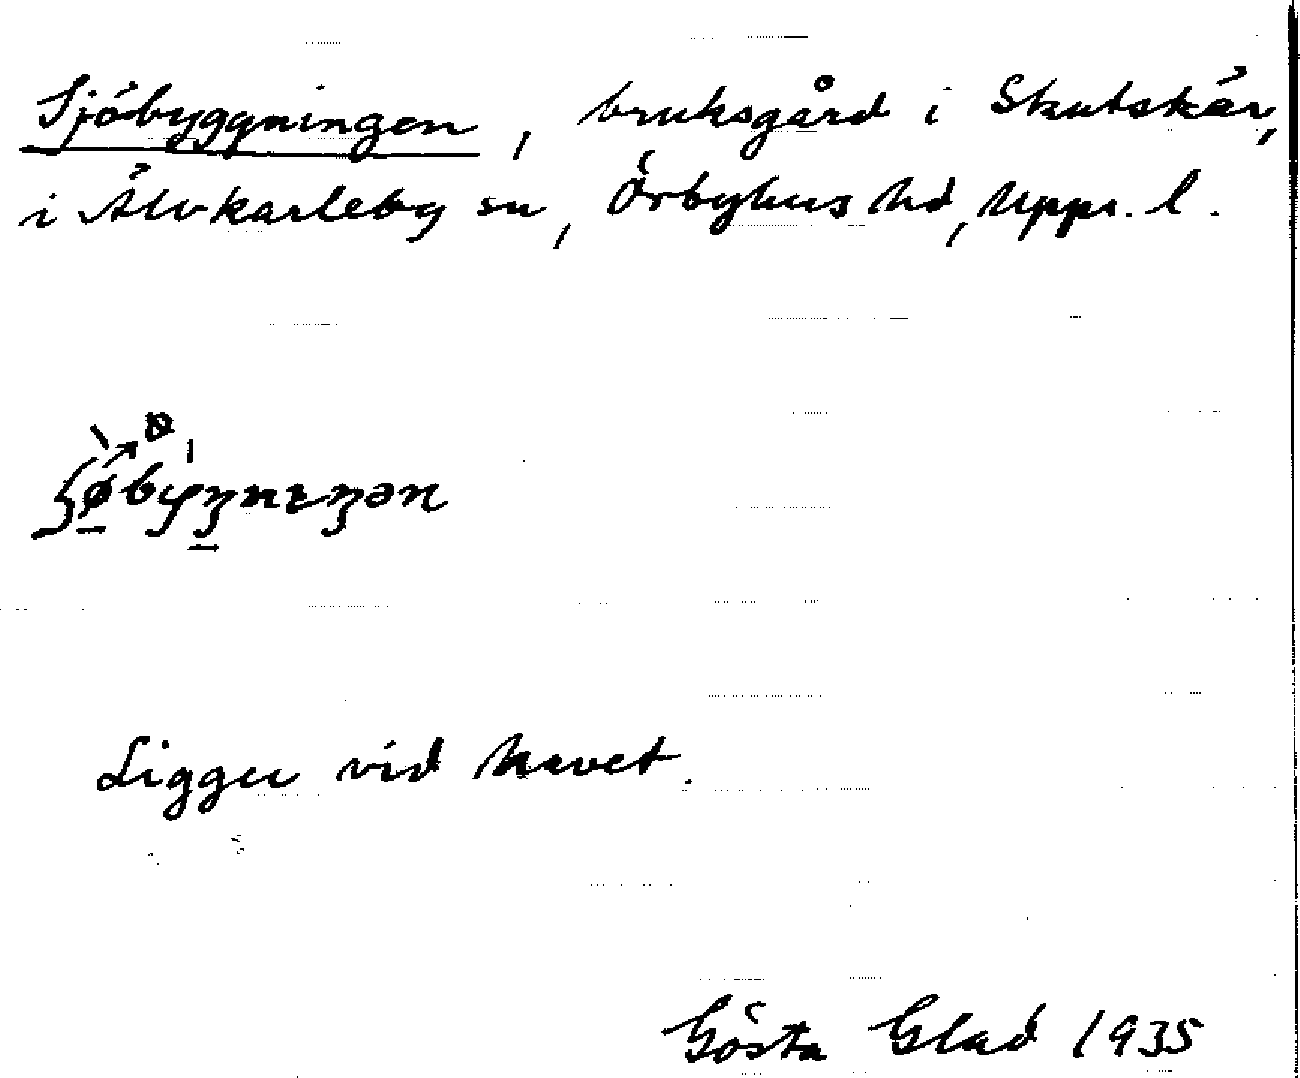 Sjöbyggningen, bruksgård i Skutskär,
i Älvkarleby sn, Örbyhus hd, Upps. l.
Ligger vid havet.
Gösta Glad 1935